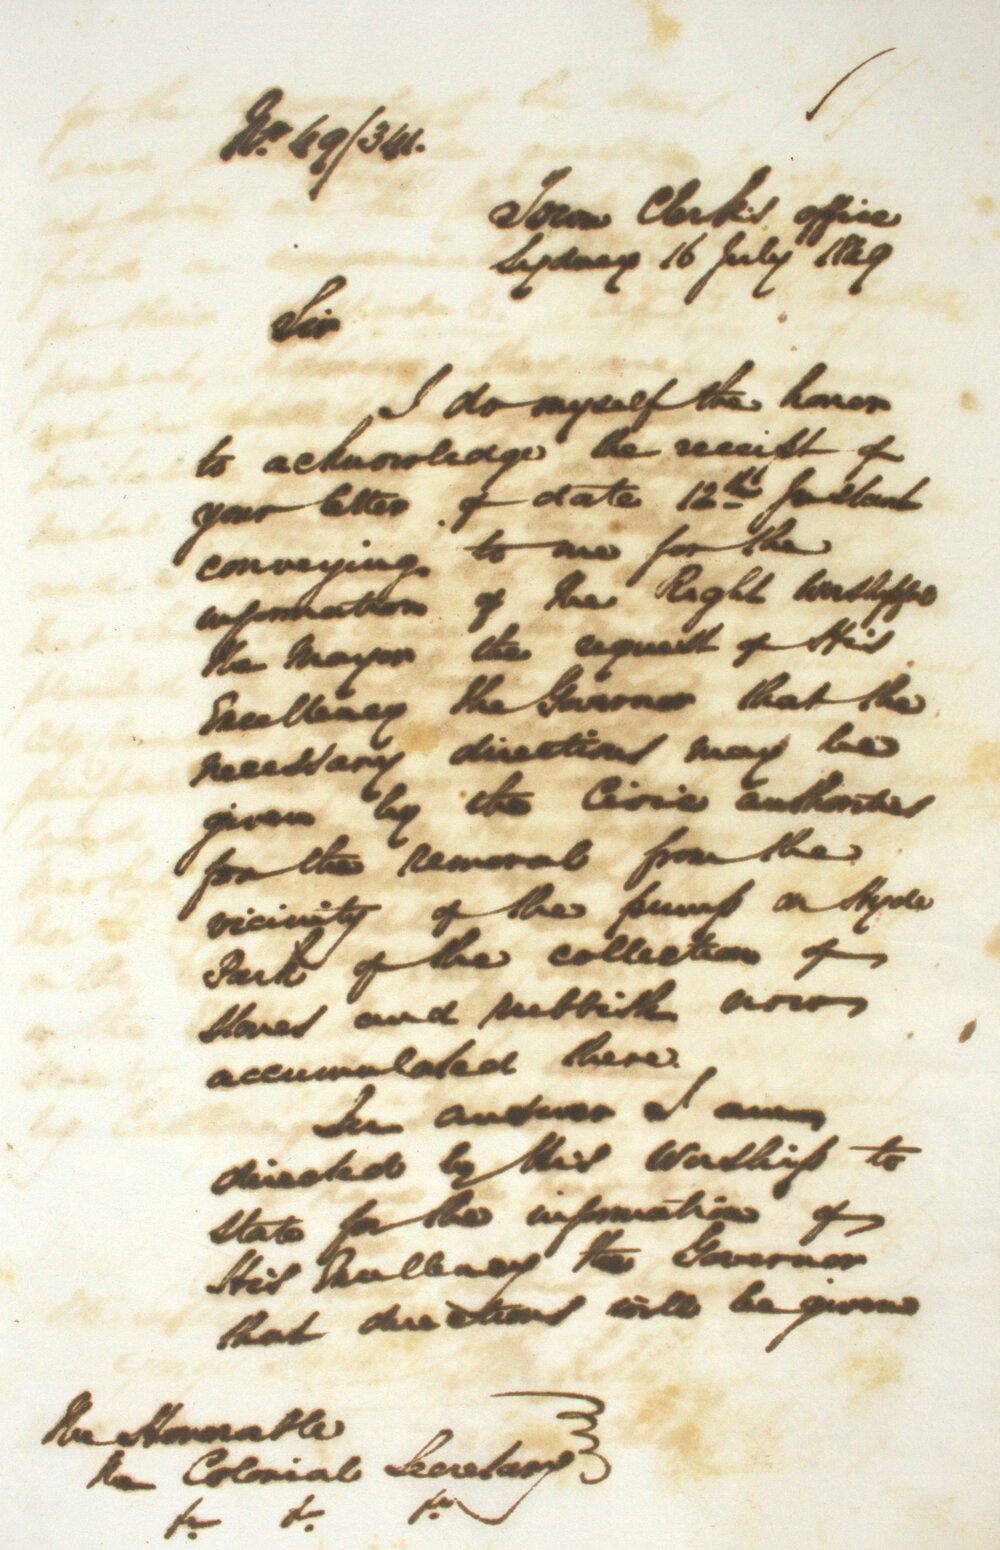 No. 49/341.
Town Clerk's office
Sydney 16 July 1849
Sir
I do myself the honor
to acknowledge the receipt of
your letter of date 12th Instant
conveying to me for the
information of the Right Worshipful
the Mayor the request of His
Excellency the Governor that the
necessary directions may be
given by the Civic authorities
for the removal from the
vicinity of the pump on Hyde
Park of the collection of
stones and rubbish now
accumulated there.
In answer I am
directed by His Worship to
state for the information of
His Excellency the Governor
that directions will be given
The Honorable
The Colonial Secretary